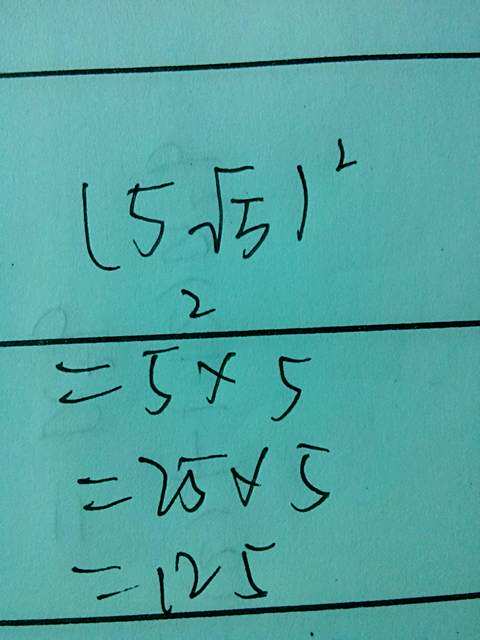 (5√5)²
= 5² × 5
= 25 × 5
= 125